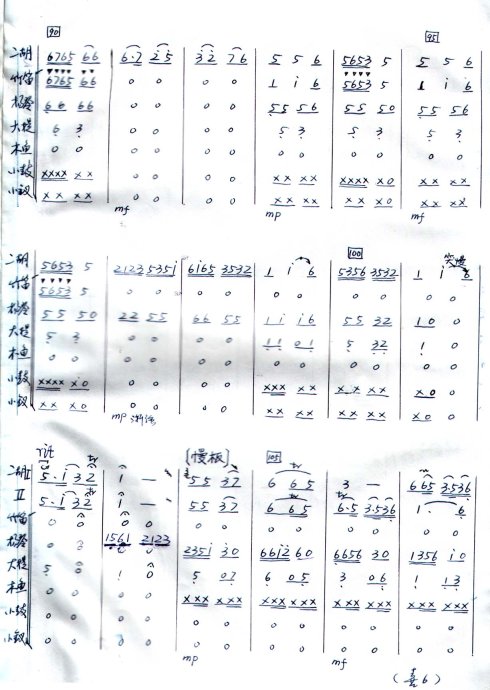 90 95
二胡 6765 66 | 6·7 2 5 | 3 2 7 6 | 5 5 6 | 5653 5 | 5 5 6
竹笛 6765 66 | 0 0 | 0 0 | 1 i 6 | 5653 5 | 1 i 6
66 66 | 0 0 | 0 0 | 55 56 | 55 50 | 55 56
大提 6 3 | 0 0 | 0 0 | 5 3 | 5 3 | 5 3
木鱼 0 0 | 0 0 | 0 0 | 0 0 | 0 0 | 0 0
小鼓 xxxx xx | 0 0 | 0 0 | xx xx | xxxx x0 | xx xx
小钗 xx xx | 0 0 | 0 0 | xx xx | xx x0 | xx xx
mf mp mf
100
二胡 5653 5 | 2123 535i | 6165 3532 | 1 i 6 | 5356 3532 | 1 i 6
竹笛 5653 5 | 0 0 | 0 0 | 0 0 | 0 0 | 0 0
55 50 | 22 55 | 66 55 | 1i i6 | 55 32 | 10 0
大提 5 3 | 0 0 | 0 0 | 11 01 | 5 32 | 1 0
木鱼 0 0 | 0 0 | 0 0 | 0 0 | 0 0 | 0 0
小鼓 xxxx x0 | 0 0 | 0 0 | xxx xx | xx xx | x0 0
小钗 xx x0 | 0 0 | 0 0 | xx xx | xx xx | x0 0
mp 渐强
rit [慢板] 105
二胡I 5·i 32 | 1 — | 55 37 | 6 65 | 3 — | 665 3536
II 5·i 32 | 1 — | 55 37 | 6 65 | 6·5 3536 | 1· 6
竹笛 0 0 | 0 0 | 0 0 | 0 0 | 0 0 | 0 0
0 0 | 1561 2123 | 235i 30 | 66i2 60 | 6656 30 | 1356 i0
大提 5 0 | 1 0 | 5 07 | 6 05 | 3 06 | 1 13
木鱼 0 0 | 0 0 | xxx xxx | xxx xxx | xxx xxx | xxx xxx
小鼓 0 0 | 0 0 | 0 0 | 0 0 | 0 0 | 0 0
小钗 0 0 | 0 0 | 0 0 | 0 0 | 0 0 | 0 0
mp mf
(喜6)